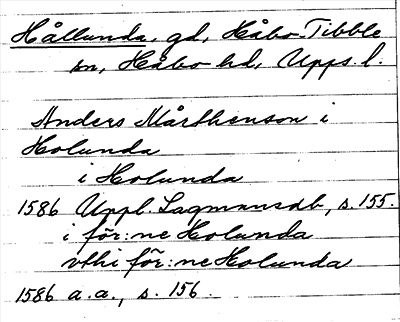 Hållunda, gd, Håbo-Tibble
sn, Håbo hd, Upps. l.
Anders Mårthenson i
Holunda
i Holunda
1586 Uppl. Lagmansdb, s. 155.
i för:ne Holunda
vthi för:ne Holunda
1586 a.a., s. 156.